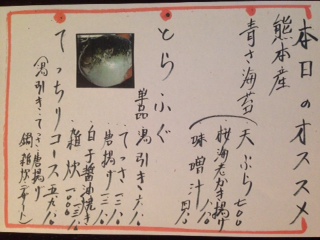 本日のオススメ
熊本産
青さ海苔
天ぷら 七〇〇
桜海老かき揚げ
味噌汁
とらふぐ
単品
馬引き
てっさ
唐揚げ
白子醤油焼き
雑炊 一〇〇〇
てっちりコース
(馬引き・てっさ・唐揚げ
鍋・雑炊・デザート)